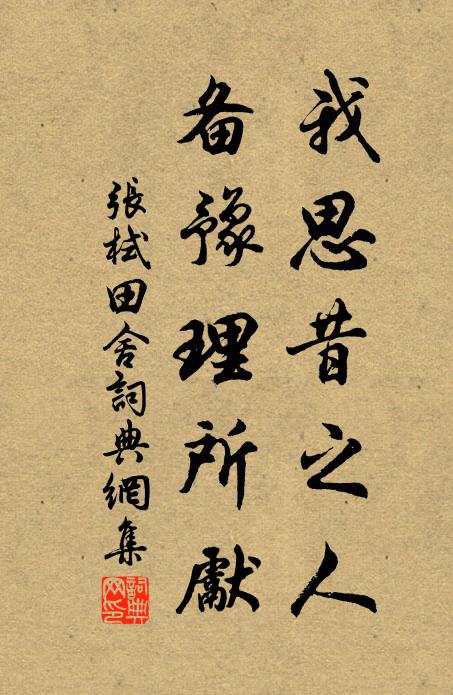 我思昔之人
备豫理所獻
張栻田舍詞典網集
詞典网印